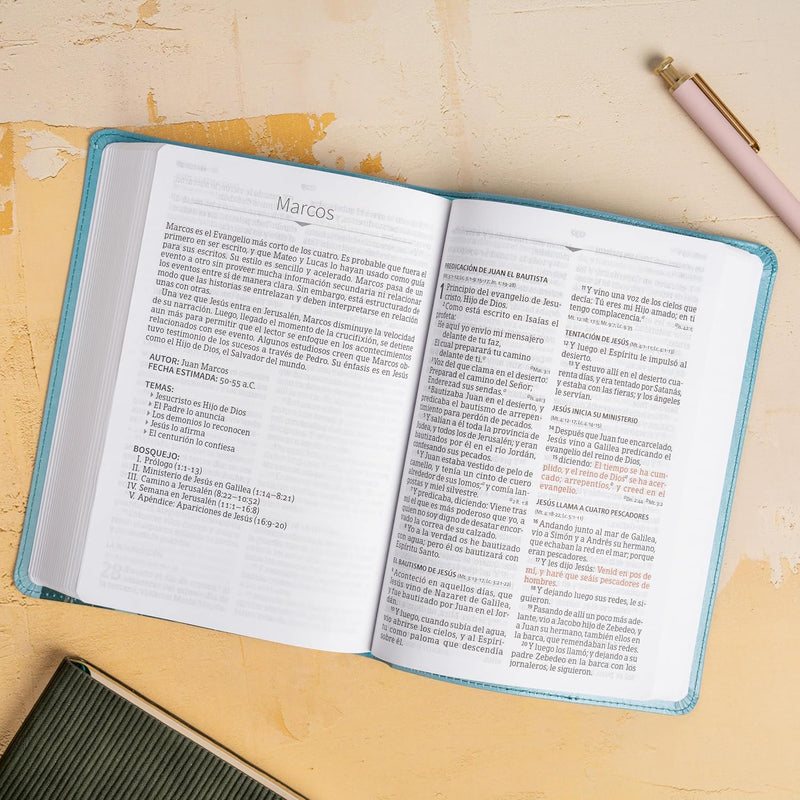 Marcos
Marcos es el Evangelio más corto de los cuatro. Es probable que fuera el
primero en ser escrito, y que Mateo y Lucas lo hayan usado como guía
para sus escritos. Su estilo es sencillo y acelerado. Marcos pasa de un
evento a otro sin proveer mucha información secundaria ni relacionar
los eventos entre sí de manera clara. Sin embargo, está estructurado de
modo que las historias se entrelazan y deben interpretarse en relación
unas con otras.
Una vez que Jesús entra en Jerusalén, Marcos disminuye la velocidad
de su narración. Luego, llegado el momento de la crucifixión, se detiene
aun más para permitir que el lector se enfoque en los acontecimientos
relacionados con ese evento. Algunos estudiosos creen que Marcos ob-
tuvo testimonio de los sucesos a través de Pedro. Su énfasis es en Jesús
como el Hijo de Dios, el Salvador del mundo.
AUTOR: Juan Marcos
FECHA ESTIMADA: 50-55 a.C.
TEMAS:
Jesucristo es Hijo de Dios
El Padre lo anuncia
Los demonios lo reconocen
Jesús lo afirma
El centurión lo confiesa
BOSQUEJO:
I. Prólogo (1:1-13)
II. Ministerio de Jesús en Galilea (1:14–8:21)
III. Camino a Jerusalén (8:22–10:52)
IV. Semana en Jerusalén (11:1–16:8)
V. Apéndice: Apariciones de Jesús (16:9-20)
PREDICACIÓN DE JUAN EL BAUTISTA
1 Principio del evangelio de Jesu-
cristo, Hijo de Dios.
2 Como está escrito en Isaías el
profeta:
He aquí yo envío mi mensajero
delante de tu faz,
El cual preparará tu camino
delante de ti.
3 Voz del que clama en el desierto:
Preparad el camino del Señor;
Enderezad sus sendas.
4 Bautizaba Juan en el desierto, y
predicaba el bautismo de arrepen-
timiento para perdón de pecados.
5 Y salían a él toda la provincia de
Judea, y todos los de Jerusalén; y eran
bautizados por él en el río Jordán,
confesando sus pecados.
6 Y Juan estaba vestido de pelo de
camello, y tenía un cinto de cuero
alrededor de sus lomos; y comía lan-
gostas y miel silvestre.
7 Y predicaba, diciendo: Viene tras
mí el que es más poderoso que yo, a
quien no soy digno de desatar encor-
vado la correa de su calzado.
8 Yo a la verdad os he bautizado
con agua; pero él os bautizará con
Espíritu Santo.
EL BAUTISMO DE JESÚS (Mt. 3:13-17; Lc. 3:21-22)
9 Aconteció en aquellos días, que
Jesús vino de Nazaret de Galilea,
y fue bautizado por Juan en el Jor-
dán.
10 Y luego, cuando subía del agua,
vio abrirse los cielos, y al Espíri-
tu como paloma que descendía
sobre él.
11 Y vino una voz de los cielos que
decía: Tú eres mi Hijo amado; en ti
tengo complacencia.
TENTACIÓN DE JESÚS (Mt. 4:1-11; Lc. 4:1-13)
12 Y luego el Espíritu le impulsó al
desierto.
13 Y estuvo allí en el desierto cua-
renta días, y era tentado por Satanás,
y estaba con las fieras; y los ángeles
le servían.
JESÚS INICIA SU MINISTERIO
(Mt. 4:12-17; Lc. 4:14-15)
14 Después que Juan fue encarcelado,
Jesús vino a Galilea predicando el
evangelio del reino de Dios,
15 diciendo: El tiempo se ha cum-
plido, y el reino de Dios se ha acer-
cado; arrepentíos, y creed en el
evangelio.
JESÚS LLAMA A CUATRO PESCADORES
(Mt. 4:18-22; Lc. 5:1-11)
16 Andando junto al mar de Galilea,
vio a Simón y a Andrés su hermano,
que echaban la red en el mar; porque
eran pescadores.
17 Y les dijo Jesús: Venid en pos de
mí, y haré que seáis pescadores de
hombres.
18 Y dejando luego sus redes, le si-
guieron.
19 Pasando de allí un poco más ade-
lante, vio a Jacobo hijo de Zebedeo, y
a Juan su hermano, también ellos en
la barca, que remendaban las redes.
20 Y luego los llamó; y dejando a su
padre Zebedeo en la barca con los
jornaleros, le siguieron.